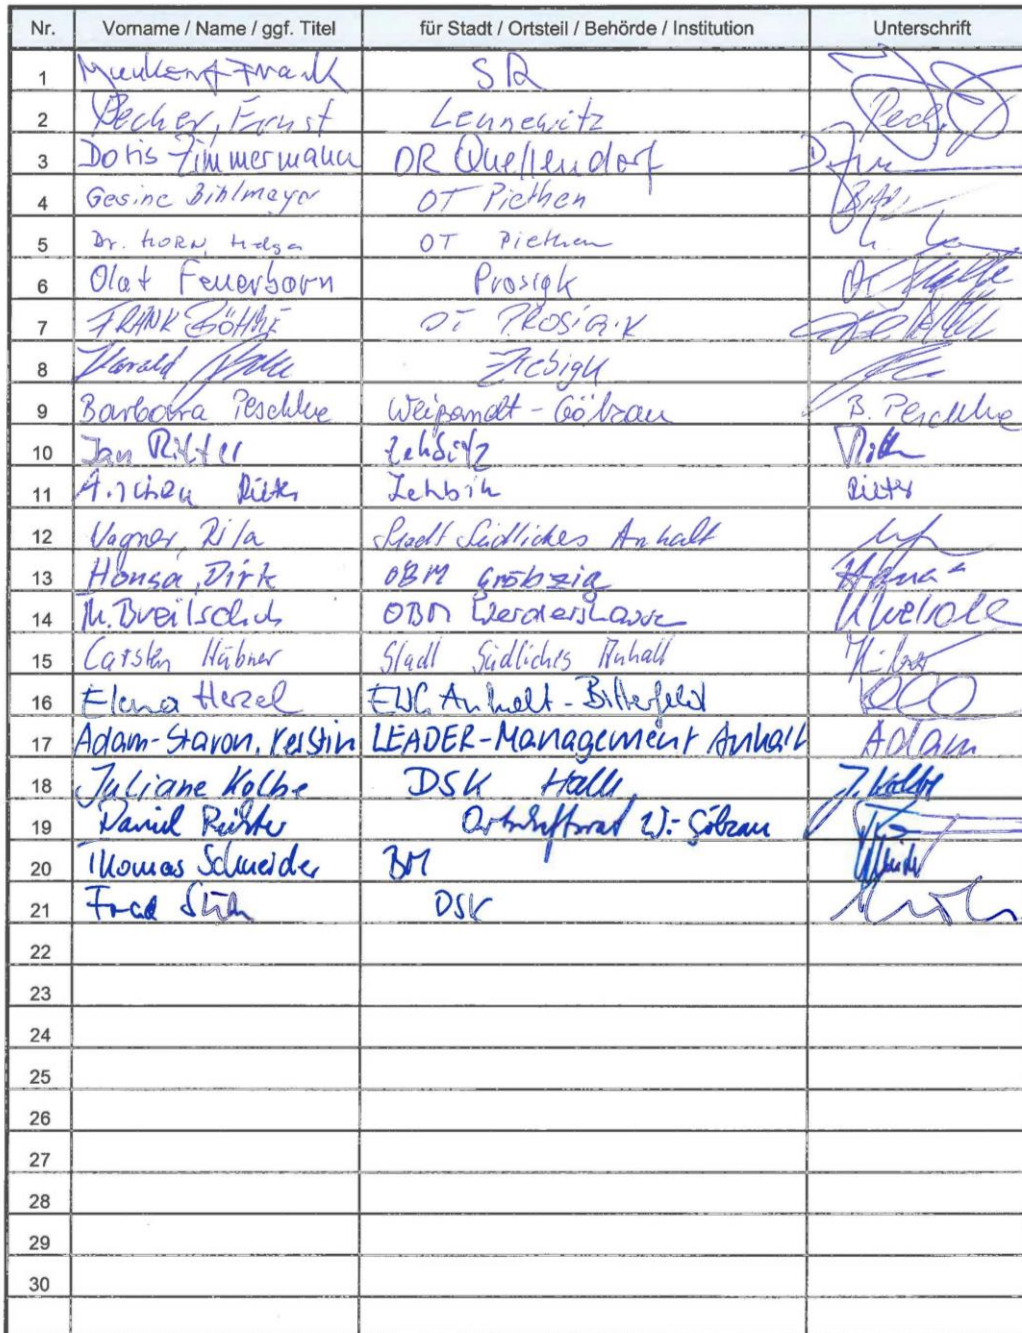 Nr. Vorname / Name / ggf. Titel für Stadt / Ortsteil / Behörde / Institution Unterschrift
1 Frank SR
2 Pecher, Ernst Lennewitz
3 Doris Zimmermann OR Quellendorf
4 Gesine Bihlmeyer OT Piethen
5 Dr. HORN, Helga OT Piethen
6 Olaf Feuerborn Prosigk
7 FRANK OT PROSIGK
8 Harald Ziebigk
9 Barbara Peschke Weißandt-Gölzau B. Peschke
10 Jan Ritter Zehbitz
11 Ritter Zehbitz Ritter
12 Wagner, Rita Stadt Südliches Anhalt
13 Honsa, Dirk OBM Gröbzig
14 M. Breitschuh OBM Werdershausen
15 Carsten Hübner Stadt Südliches Anhalt
16 Elena Herzel EWG Anhalt-Bitterfeld
17 Adam-Staron, Kerstin LEADER-Management Anhalt Adam
18 Juliane Kolbe DSK Halle J. Kolbe
19 Daniel Richter Ortschaftsrat W.-Gölzau
20 Thomas Schneider BM
21 DSK
22
23
24
25
26
27
28
29
30